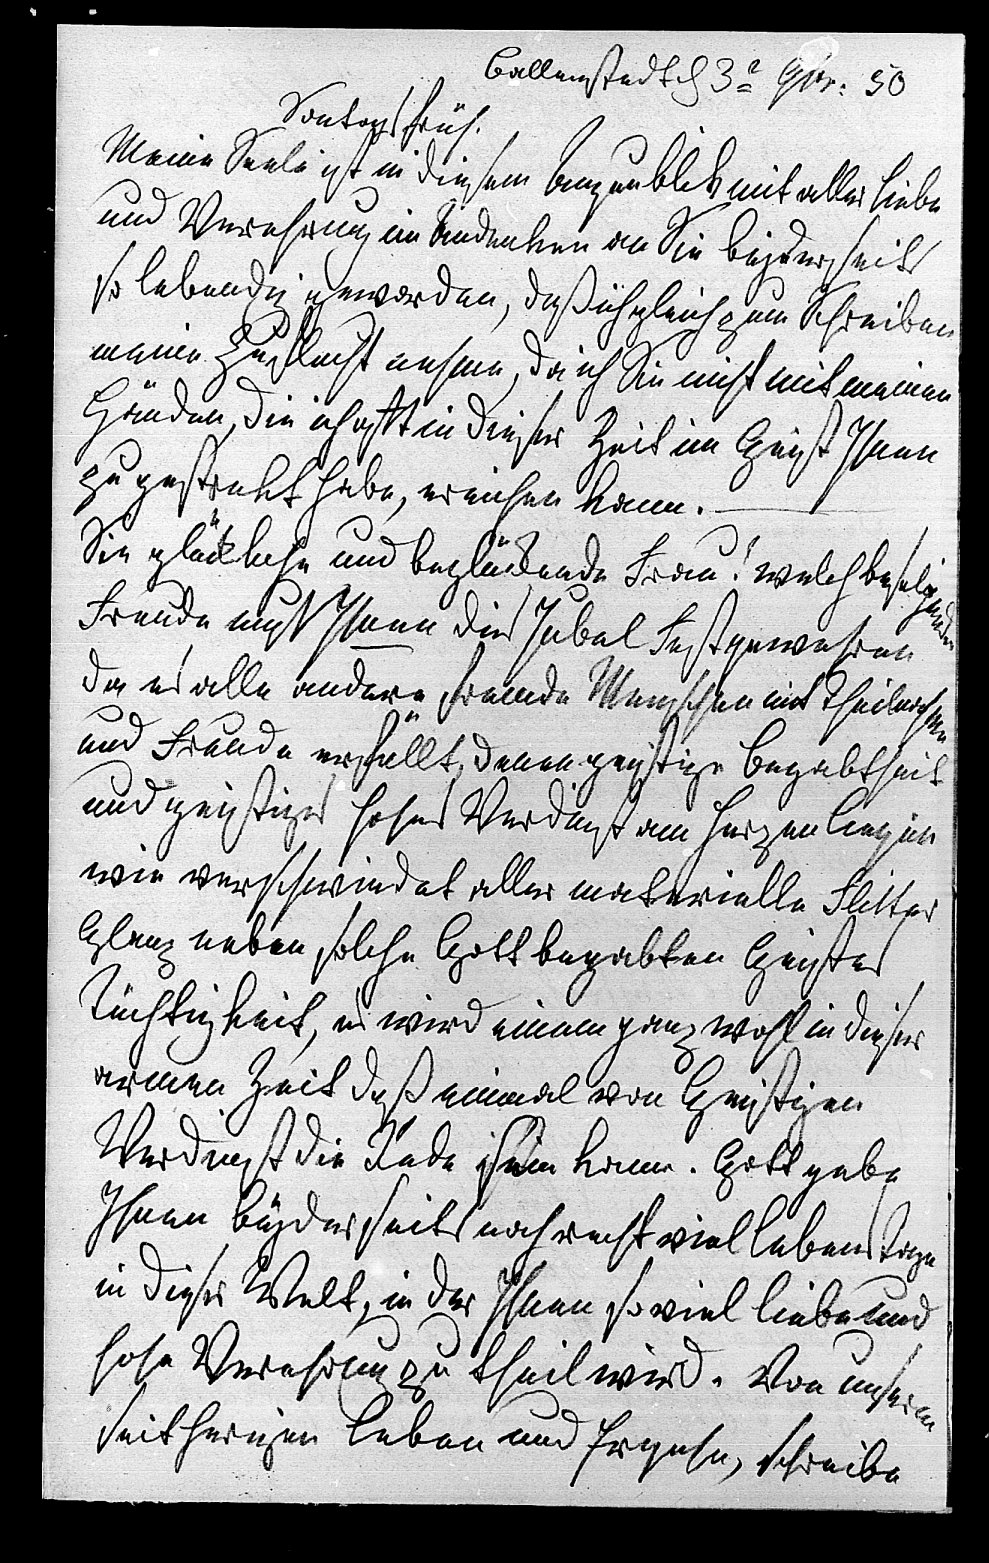 Ballenstedt d 3n 9br: 50
Sontags früh.
Meine Seele ist in diesem Augenblik mit aller Liebe
und Verehrung im Andenken an Sie beyderseits
so lebendig geworden, daß ich gleich zum Schreiben
meine Zuflucht nehme, da ich Sie nicht mit meinen
Händen, die ich oft in dieser Zeit im Geist Ihnen
zugestrekt habe, erreichen kann.
Sie glückliche und beglückende Frau! welch beseligende
Freude muß Ihnen dies Jubel Fest gewähren
da es alle andere fremde Menschen mit Theilnahme
und Freude erfüllt, denen geistige Begabtheit
und geistiges hohes Verdienst am Herzen liegen
wie verschwindet aller materielle Flitter
Glanz neben solche Gott begabten Geistes
Tüchtigkeit, es wird einem ganz wohl in dieser
armen Zeit daß einmal von Geistigen
Verdienst die Rede sein kann. Gott gebe
Ihnen beyderseits noch recht viel Lebenstage
in dieser Welt, in der Ihnen so viel Liebe und
hohe Verehrung zu theil wird. Von unserm
seitherigen Leben und Ergehn, schreibe